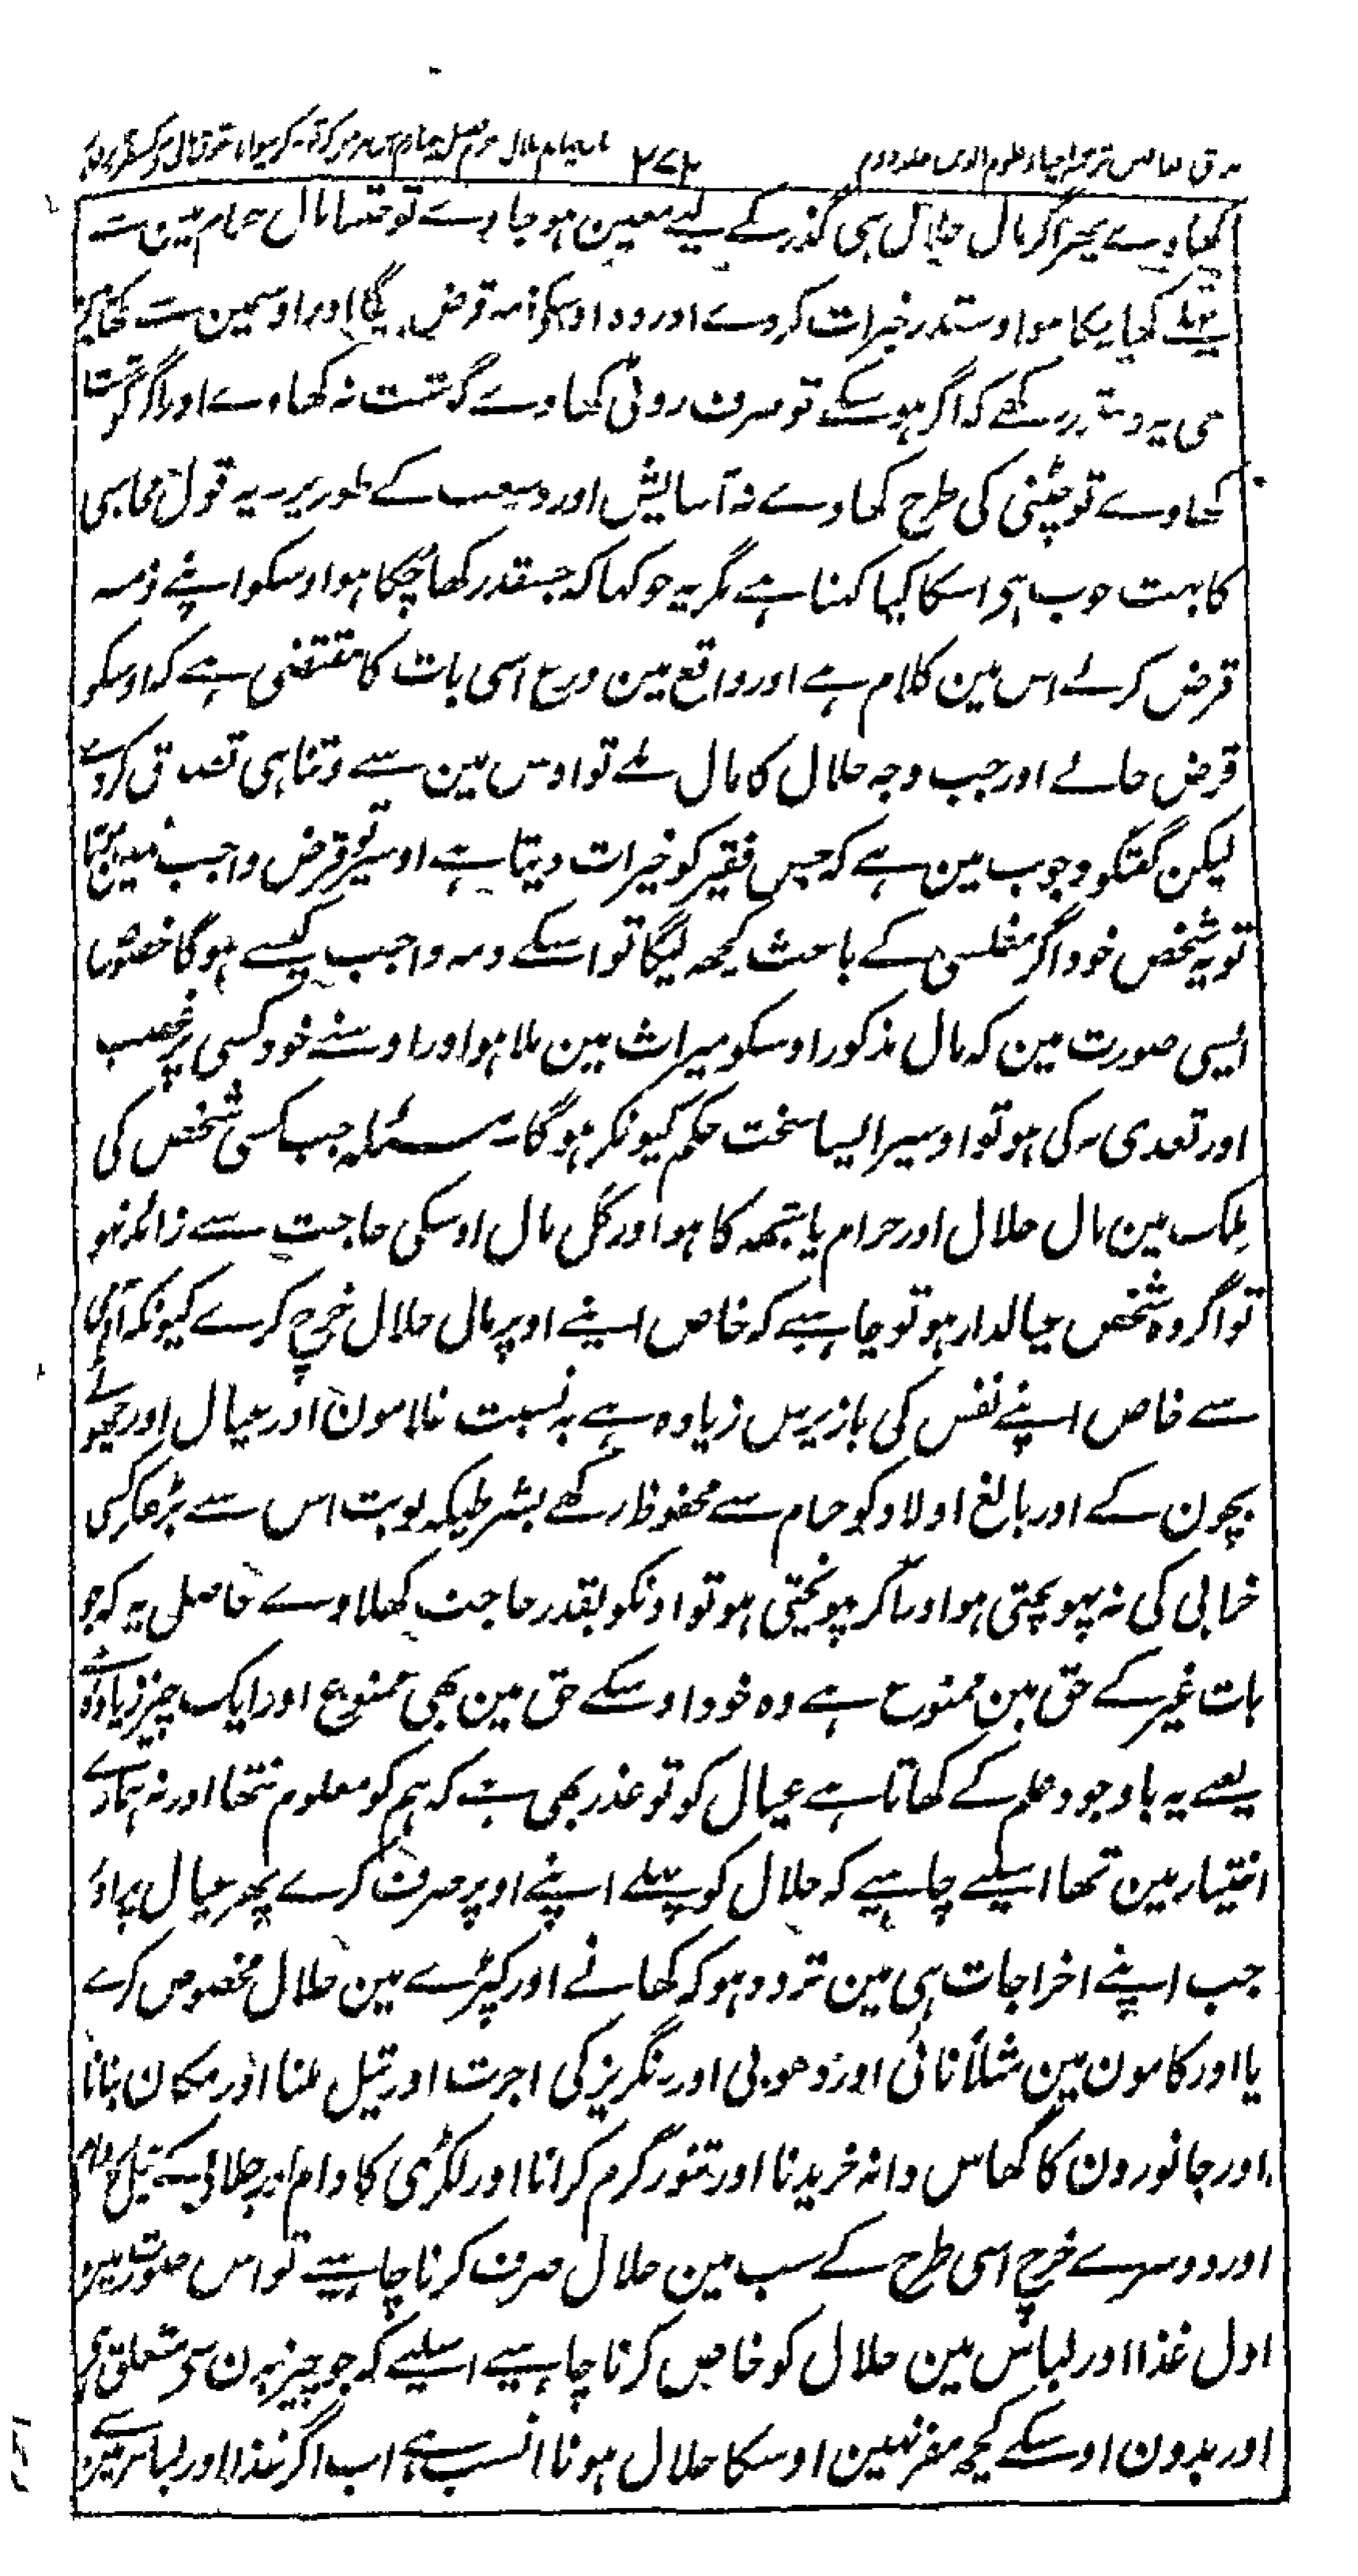 ۲۷۲
کھاوے پھر اگر مال حلال ہی گذر کے لیے معین ہو جاوے تو جتنا مال حرام مین سے
پہلے کھایا ہو اوسقدر خیرات کردے اور وہ اوسکے ذمہ قرض اور اوسمین سے
یہ دستور رکھے کہ اگر ہو سکے تو صرف روٹی کھاوے گوشت نہ کھاوے اور اگر گوشت
کھاوے تو چٹنی کی طرح کھاوے نہ آسایش اور وسعت کے طور پر یہ قول محاسبی
کا بہت خوب ہی اسکا کیا کہنا ہے مگر یہ جو کہا کہ جسقدر کھا چکا ہو اوسکو اپنے ذمہ
قرض کرلے اس مین کلام ہے اور واقع مین ورع اسی بات کا مقتضی ہے کہ اوسکو
قرض جانے اور جب وجہ حلال کا مال ملے تو اوس مین سے وتنا ہی تصدق کردے
لیکن گفتگو وجوب مین ہے کہ جس فقیر کو خیرات دیتا ہے اوسپر تو قرض واجب نہین ہوتا
تو یہ شخص خود اگر مفلسی کے باعث کچھ لیگا تو اسکے ذمہ واجب کیسے ہوگا خصوصًا
ایسی صورت مین کہ مال مذکور اوسکو میراث مین ملا ہو اور اوسنے خود کسی پر غصب
اور تعدی نہ کی ہو تو اوسپر ایسا سخت حکم کیونکر ہوگا مسئلہ جب کسی شخص کی
ملک مین مال حلال اور حرام یا شبہہ کا ہو اور کل مال اوسکی حاجت سے زائد نہو
تو اگر وہ شخص عیالدار ہو تو چاہیے کہ خاص اپنے اوپر مال حلال خرچ کرے کیونکہ آدمی
سے خاص اپنے نفس کی بازپرس زیادہ ہے بہ نسبت غلامون اور عیال اور چھوٹے
بچون کے اور بالغ اولاد کو حرام سے محفوظ رکھے بشرطیکہ نوبت اس سے بڑھکر کسی
خرابی کی نہ پہونچتی ہو اور اگر پہونچتی ہو تو اونکو بقدر حاجت کھلاوے حاصل یہ کہ جو
بات غیر کے حق مین ممنوع ہے وہ خود اوسکے حق مین بھی ممنوع اور ایک چیز زیادہ ہے
یعنے یہ باوجود علم کے کھاتا ہے عیال کو تو عذر بھی ہے کہ ہم کو معلوم نتھا اور نہ ہمارے
اختیار مین تھا اسلیے چاہیے کہ حلال کو پہلے اپنے اوپر صرف کرے پھر عیال پر اور
جب اپنے اخراجات ہی مین تردد ہو کہ کھانے اور کپڑے مین حلال مخصوص کرے
یا اور کامون مین مثلاً نائی اور دھوبی اور رنگریز کی اجرت اور تیل ملنا اور مکان بنانا
اور جانورون کا گھاس دانہ خریدنا اور تنور گرم کرانا اور لکڑی کا دام اور جلانے کے تیل کا دام
اور دوسرے خرچ اسی طرح کے سب مین حلال صرف کرنا چاہیے تو اس صورت مین
اول غذا اور لباس مین حلال کو خاص کرنا چاہیے اسلیے کہ جو چیز بدن سے متعلق ہے
اور بدون اوسکے کچھ مفر نہین اوسکا حلال ہونا انسب ہے اب اگر غذا اور لباس مین سے